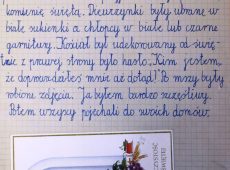 komienię świętą. Dziewczynki były ubrane w
białe sukienki a chłopcy w białe lub czarne
garnitury. Kościół był udekorowany od wnę-
trz z prawej strony było hasło „Kim jestem,
że doprowadziłeś mnie aż dotąd! Po mszy były
robione zdjęcia. Ja byłem bardzo szczęśliwy.
Potem wszyscy pojechali do swoich domów.